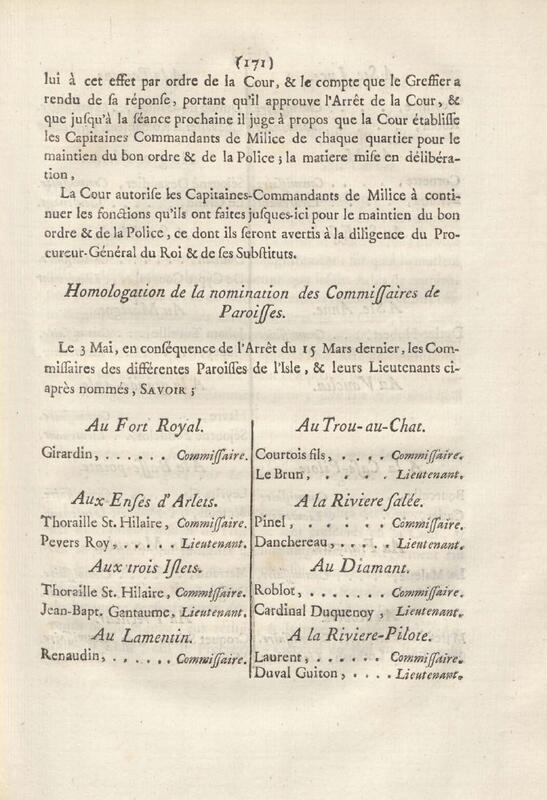 (171)
lui à cet effet par ordre de la Cour, & le compte que le Greffier a
rendu de ſa réponſe, portant qu'il approuve l'Arrêt de la Cour, &
que juſqu'à la séance prochaine il juge à propos que la Cour établiſſe
les Capitaines Commandants de Milice de chaque quartier pour le
maintien du bon ordre & de la Police; la matiere miſe en délibéra-
tion,
La Cour autoriſe les Capitaines-Commandants de Milice à conti-
nuer les fonctions qu'ils ont faites juſques-ici pour le maintien du bon
ordre & de la Police, ce dont ils ſeront avertis à la diligence du Pro-
cureur-Général du Roi & de ſes Subſtituts.
Homologation de la nomination des Commiſſaires de
Paroiſſes.
Le 3 Mai, en conſéquence de l'Arrêt du 15 Mars dernier, les Com-
miſſaires des différentes Paroiſſes de l'Isle, & leurs Lieutenants ci-
après nommés, SAVOIR;
Au Fort Royal.
Girardin, . . . . . . Commiſſaire.
Aux Enſes d'Arlets.
Thoraille St. Hilaire, Commiſſaire.
Pevers Roy, . . . . . Lieutenant.
Aux trois Iſlets.
Thoraille St. Hilaire, Commiſſaire.
Jean-Bapt. Gantaume, Lieutenant.
Au Lamentin.
Renaudin, . . . . . . Commiſſaire.
Au Trou-au-Chat.
Courtois fils, . . . . Commiſſaire.
Le Brun, . . . . . Lieutenant.
A la Riviere ſalée.
Pinel, . . . . . Commiſſaire.
Danchereau, . . . . . Lieutenant.
Au Diamant.
Roblot, . . . . . . Commiſſaire.
Cardinal Duquenoy, . Lieutenant.
A la Riviere-Pilote.
Laurent, . . . . . . Commiſſaire.
Duval Guiton, . . . . Lieutenant.